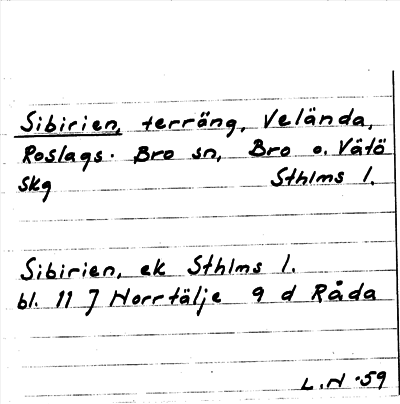 Sibirien, terräng, Velända,
Roslags-Bro sn, Bro o. Vätö
skg Sthlms l.
Sibirien, ek Sthlms l.
bl. 11 J Norrtälje 9 d Råda
L.N -59